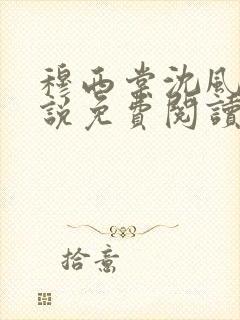 穆西棠沈风
說免費閱讀
拾意